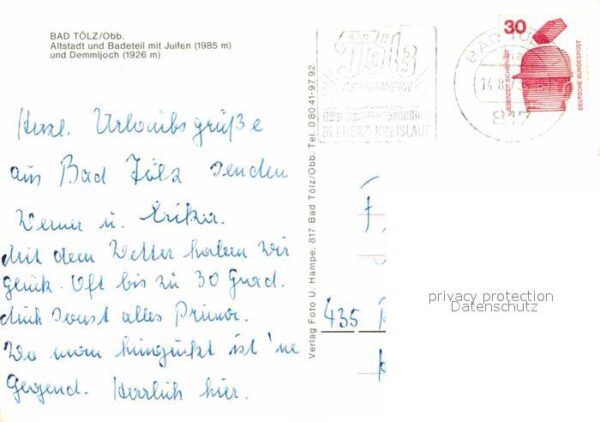 BAD TÖLZ/Obb.
Altstadt und Badeteil mit Juifen (1985 m)
und Demmljoch (1926 m)
Herzl. Urlaubsgrüße
aus Bad Tölz senden
Werner u. Erika.
Mit dem Wetter haben wir
Glück. Oft bis zu 30 Grad.
auch sonst alles Prima.
Wo man hinguckt ist 'ne
Gegend. Herrlich hier.
Verlag Foto U. Hampe, 817 Bad Tölz/Obb. Tel. 08041-9792
Tölz
OBERBAYERN
BEI HERZ-KREISLAUF
BAD TÖL
14.8.
817
30
JEDERZEIT SICHERHEIT
DEUTSCHE BUNDESPOST
F
435
privacy protection
Datenschutz